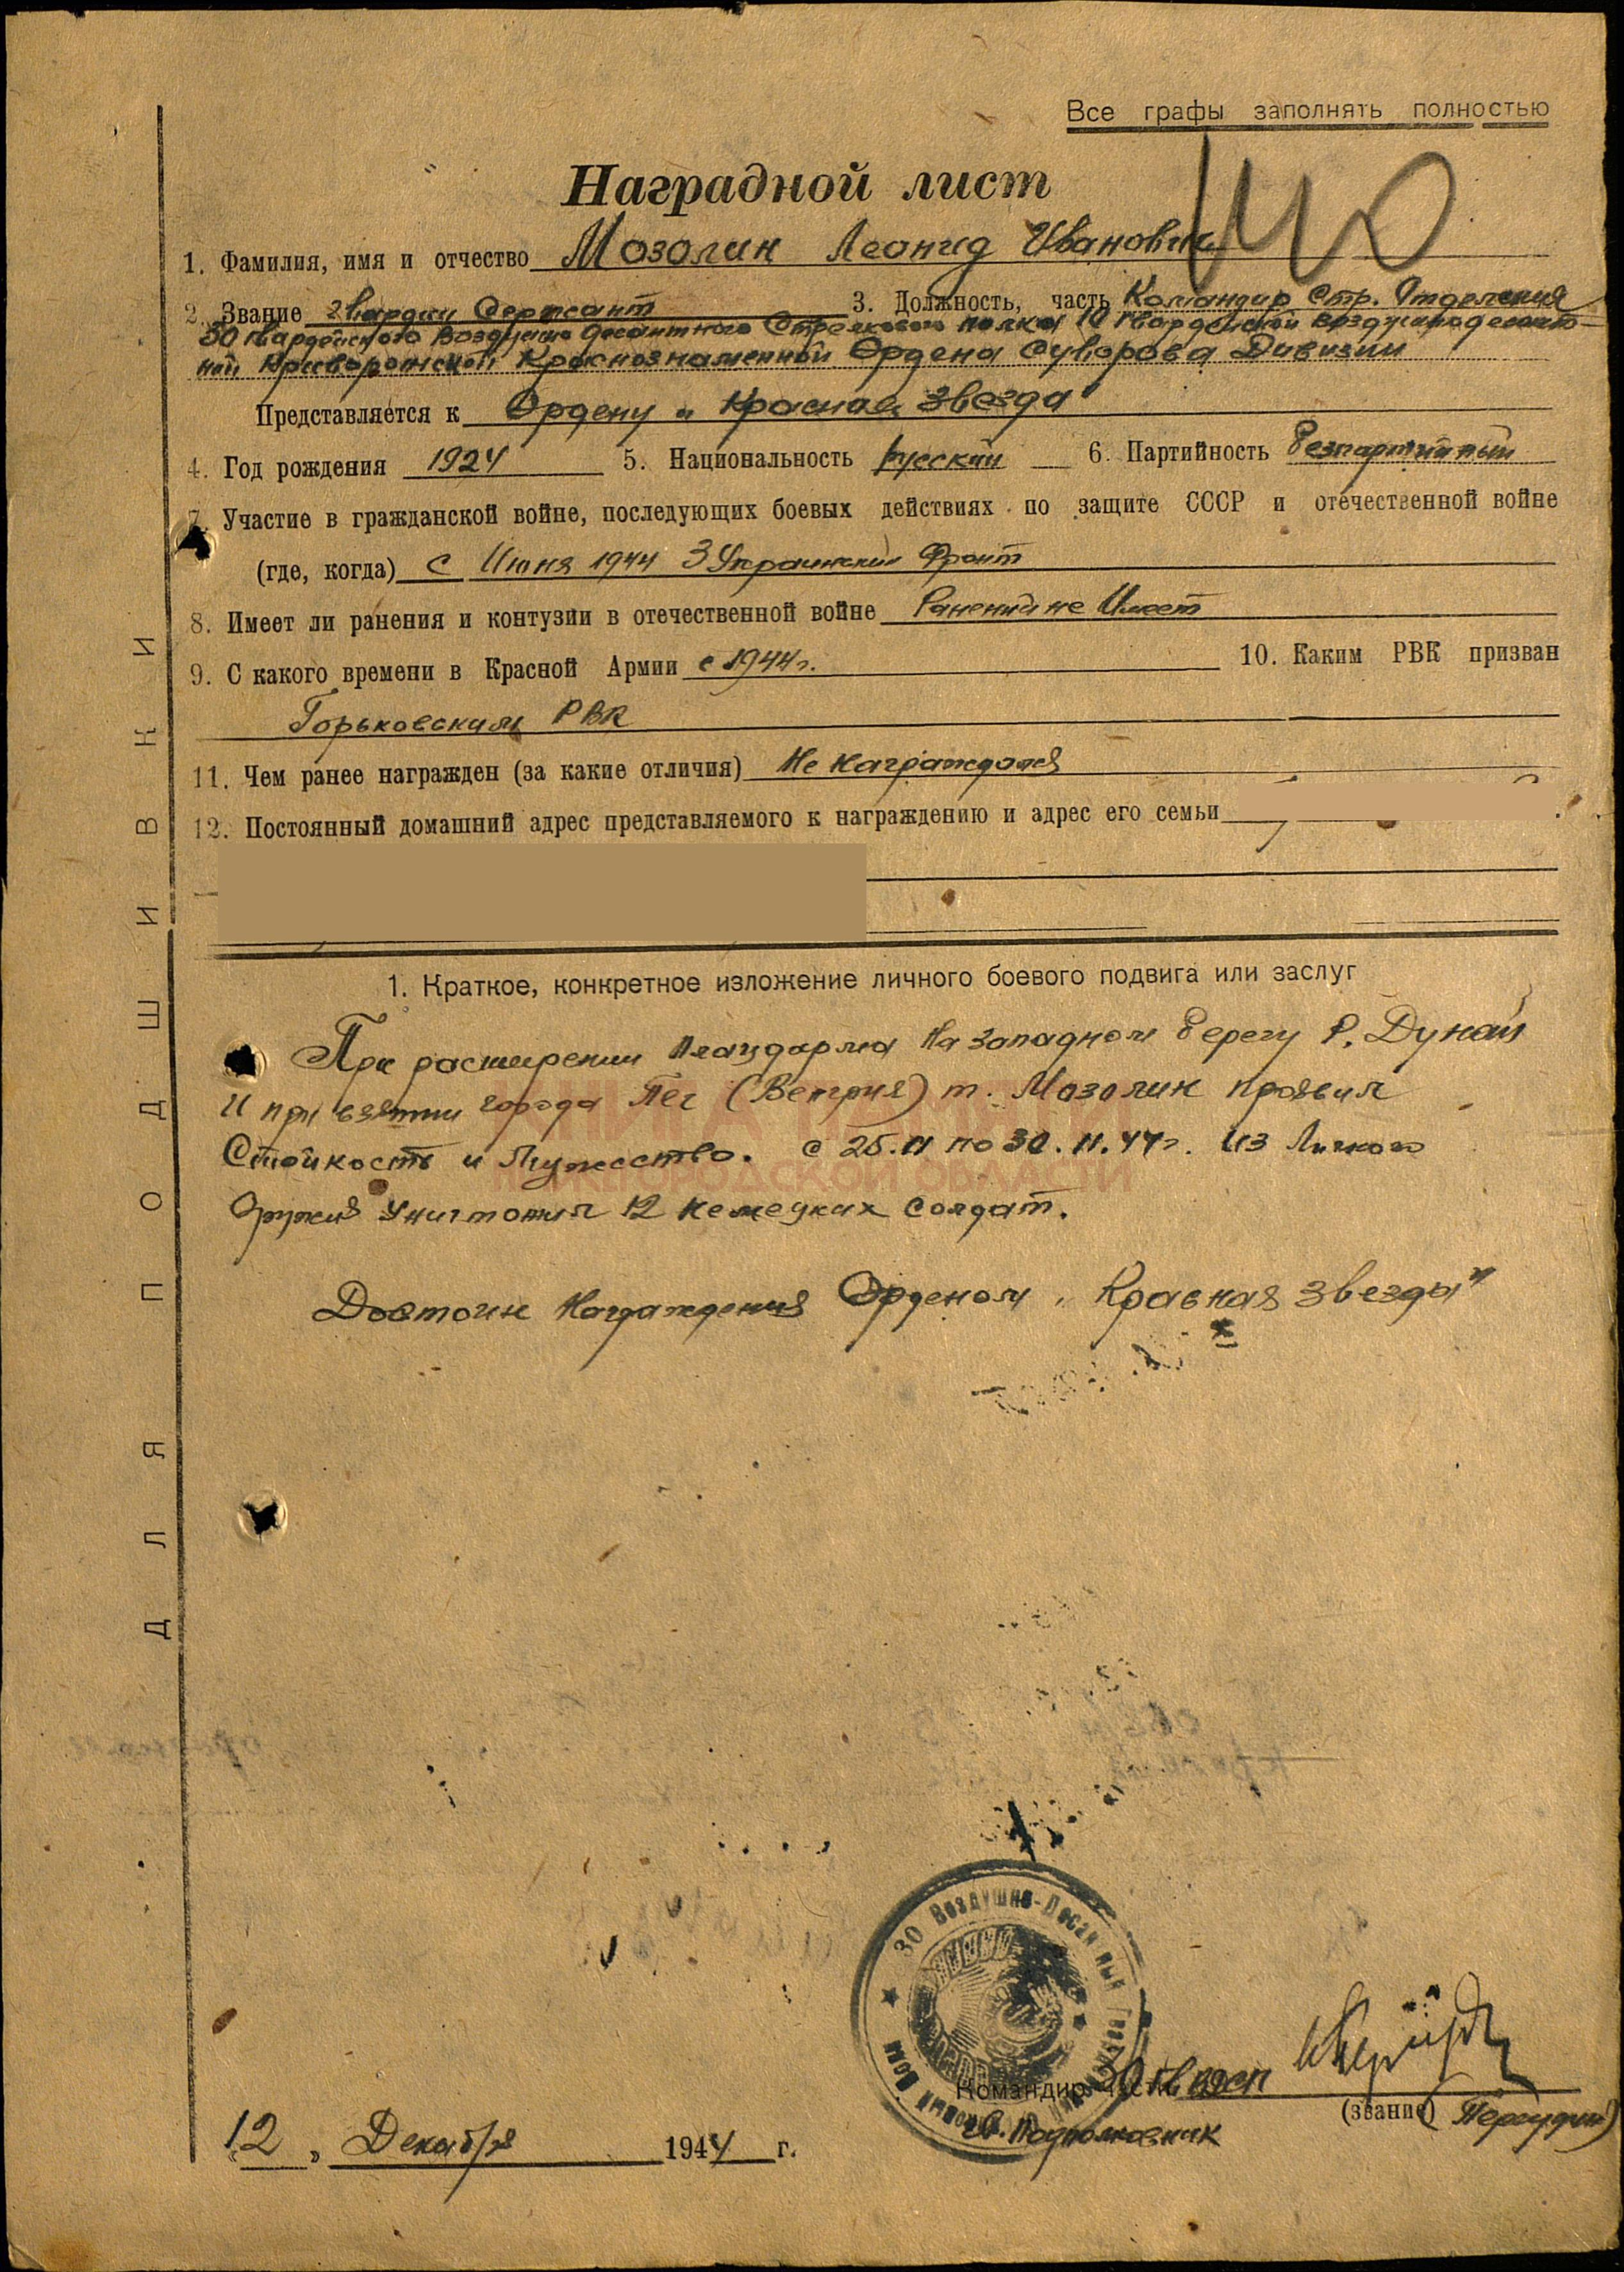 Все графы заполнять полностью
Наградной лист
1. Фамилия, имя и отчество Мозолин Леонид Иванович
2. Звание гвардии Сержант 3. Должность, часть Командир Стр. Отделения
30 гвардейского Воздушно десантного Стрелкового полка 10 гвардейской воздушнодесант-
ной Криворожской Краснознаменной Ордена Суворова Дивизии
Представляется к Ордену „Красная Звезда"
4. Год рождения 1924 5. Национальность русский 6. Партийность беспартийный
7. Участие в гражданской войне, последующих боевых действиях по защите СССР и отечественной войне
(где, когда) с Июня 1944 3 Украинский Фронт
8. Имеет ли ранения и контузии в отечественной войне Ранений не Имеет
9. С какого времени в Красной Армии с 1944г. 10. Каким РВК призван
Горьковским РВК
11. Чем ранее награжден (за какие отличия) Не награждался
12. Постоянный домашний адрес представляемого к награждению и адрес его семьи
1. Краткое, конкретное изложение личного боевого подвига или заслуг
При расширении плацдарма на западном берегу р. Дунай
и при взятии города Печ (Венгрия) т. Мозолин проявил
Стойкость и Мужество. с 25.11 по 30.11.44г. из Личного
Оружия Уничтожил 12 немецких солдат.
Достоин Награждения Орденом „Красная Звезды"
КНИГА ПАМЯТИ
НИЖЕГОРОДСКОЙ ОБЛАСТИ
ДЛЯ ПОДШИВКИ
30 Воздушно-Десантный
Командир части 30 гв вдсп
Гв. Подполковник (звание)
12 „ Декабря 1944 г.